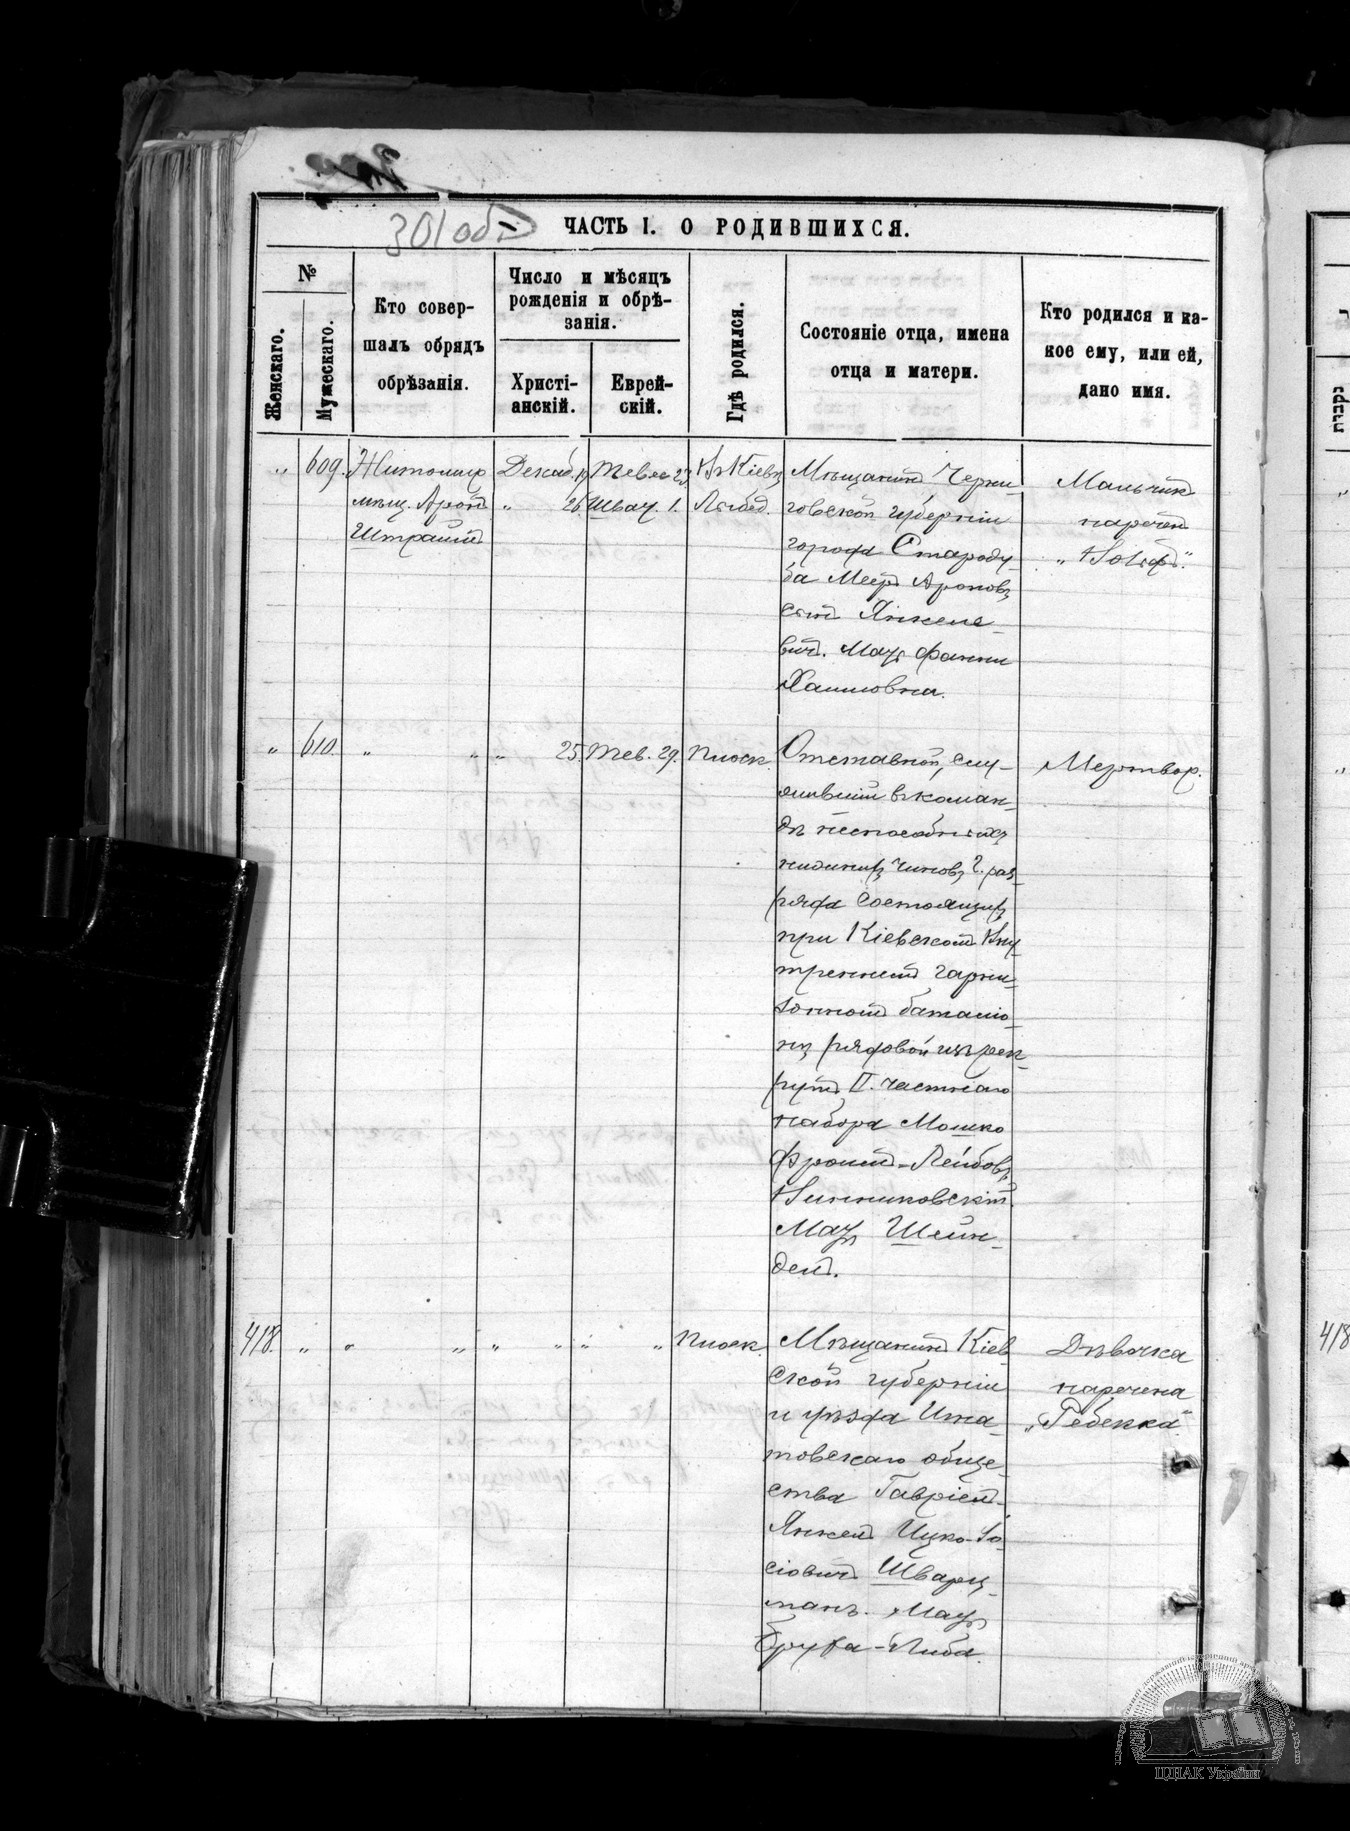 301 об
ЧАСТЬ I. О РОДИВШИХСЯ.
№
Женскаго.
Мужескаго.
Кто совер-
шалъ обрядъ
обрѣзанія.
Число и мѣсяцъ
рожденія и обрѣ-
занія.
Христі-
анскій.
Еврей-
скій.
Гдѣ родился.
Состояніе отца, имена
отца и матери.
Кто родился и ка-
кое ему, или ей,
дано имя.
„ 609. Житомир
мѣщ. Арон
Декаб. 19
„ 26
Тевес 23
Шват. 1.
Въ Кіевѣ
Лыбед.
Мѣщанинъ Черни-
говской губерніи
города Староду-
ба Меер Аронов
сынъ Янкеле-
вичъ. Мать Фанни
Хаимовна.
Мальчикъ
наречен
„ 610. „ „ „ 25. Тев. 29. Плоск.
Отставной, слу-
жившій въ коман-
дѣ неспособныхъ
нижнихъ чиновъ 2. раз-
ряда состоящихъ
при Кіевскомъ Вну-
треннемъ гарни-
зонномъ баталіо-
нѣ рядовой изъ рек-
рутъ II. частнаго
набора Мошко
Фроимъ-Лейбовъ
Винниковскій
Мать Шейн-
дель.
Мертвор.
418. „ „ „ „ „ „ „ Плоск.
Мѣщанинъ Кіев-
ской губерніи
и уѣзда Игна-
товскаго обще-
ства Гавріель-
Янкель Ицко-Іо-
сіовичъ Шварц-
манъ. Мать
Bруха-Либа.
Дѣвочка
наречена
„Ребекка“
418
ЦДІАК України